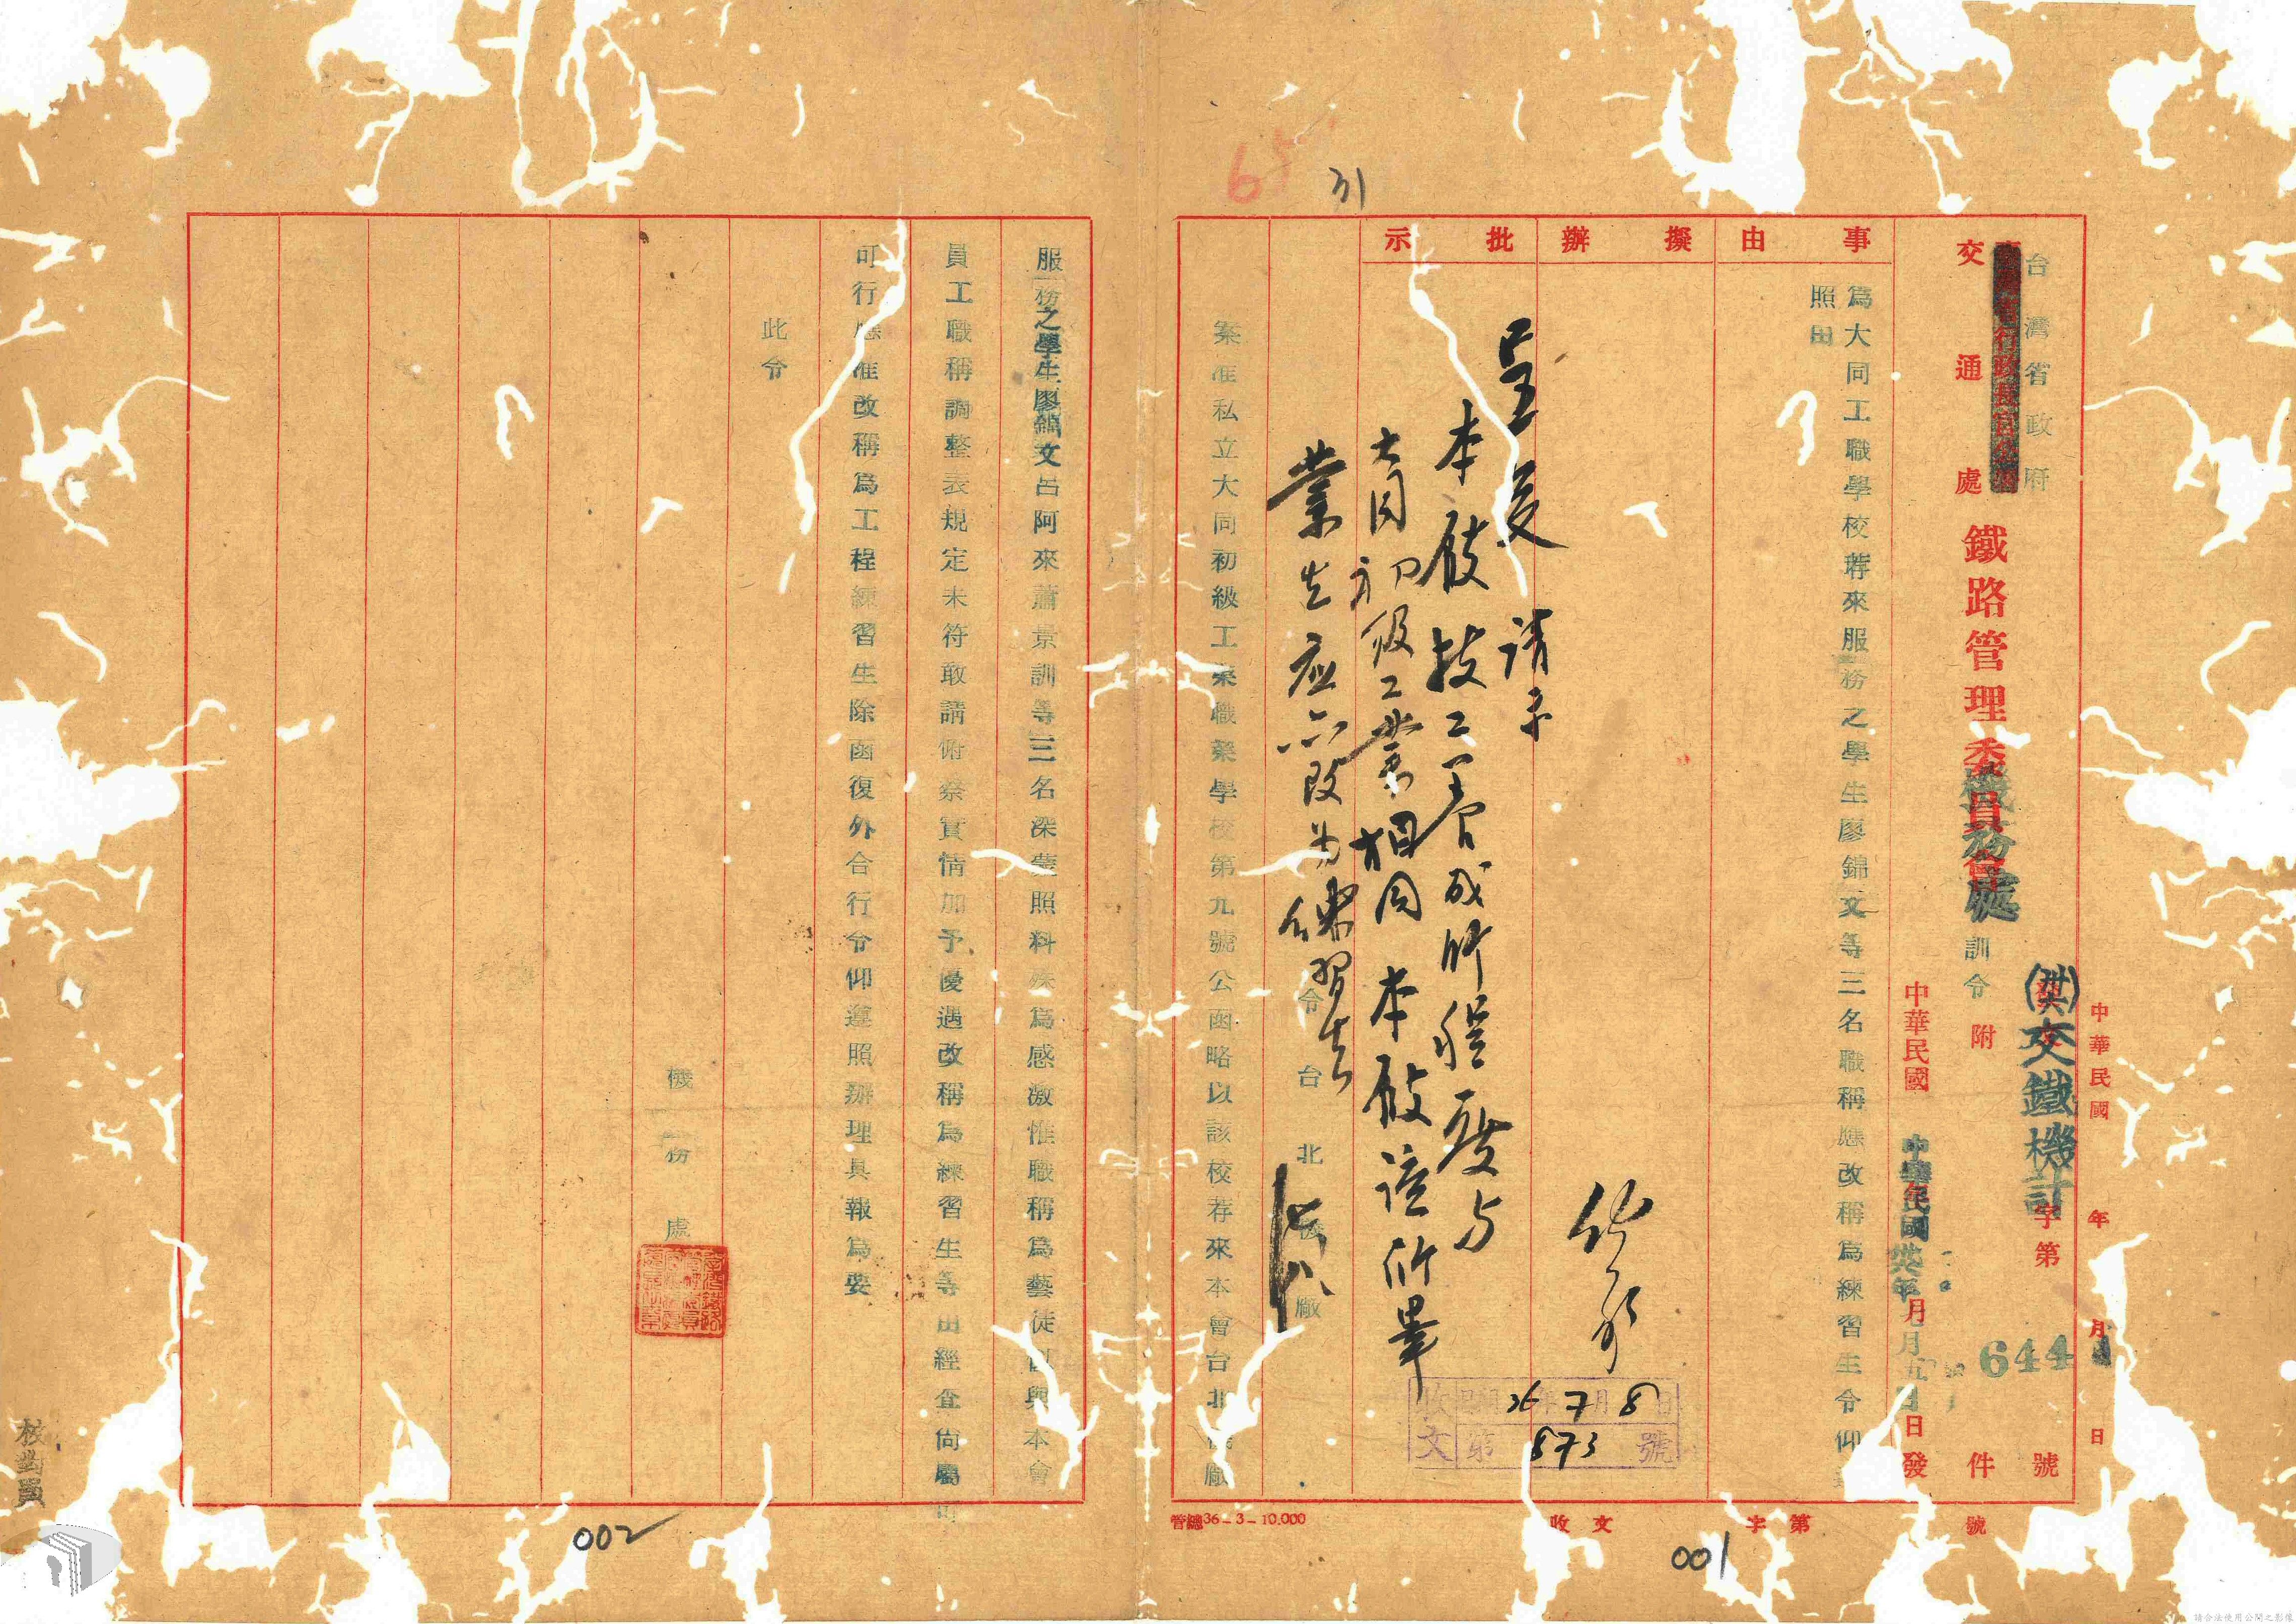 65
31
台灣省政府
交通處
鐵路管理
機務處
訓令
附
件
(卅六)交鐵機計
字第
644
號
中華民國
年
月
日
中華民國
中華民國卅六年
月五日
日發
事由
擬辦
批示
為大同工職學校荐來服務之學生廖錦文等三名職稱應改稱為練習生令仰
照由
呈
請示
本廠技工養成所程度与
大同初级工業相同本廠這所畢
業生应
改为
練習生
令台北
廠
案准私立大同初級工業職業學校第九號公函略以該校荐來本會台北
廠
服務之學生廖錦文呂阿來蕭景訓等三名深蒙照料殊為感激惟職稱為藝徒
與本會
員工職稱調整表規定未符敢請俯察實情加予優遇改稱為練習生等由經查尚屬可
可行應准改稱為工程練習生除函復外合行令仰遵照辦理具報為要
此令
機務處
收文
36年7月8日
第873號
管總36-3-10.000
收文
字第
號
001
002
核對員
請合法使用公開之影像